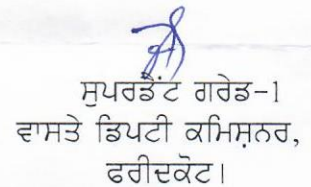 ਸੁਪਰਡੈਂਟ ਗਰੇਡ-1
ਵਾਸਤੇ ਡਿਪਟੀ ਕਮਿਸ਼ਨਰ,
ਫਰੀਦਕੋਟ।